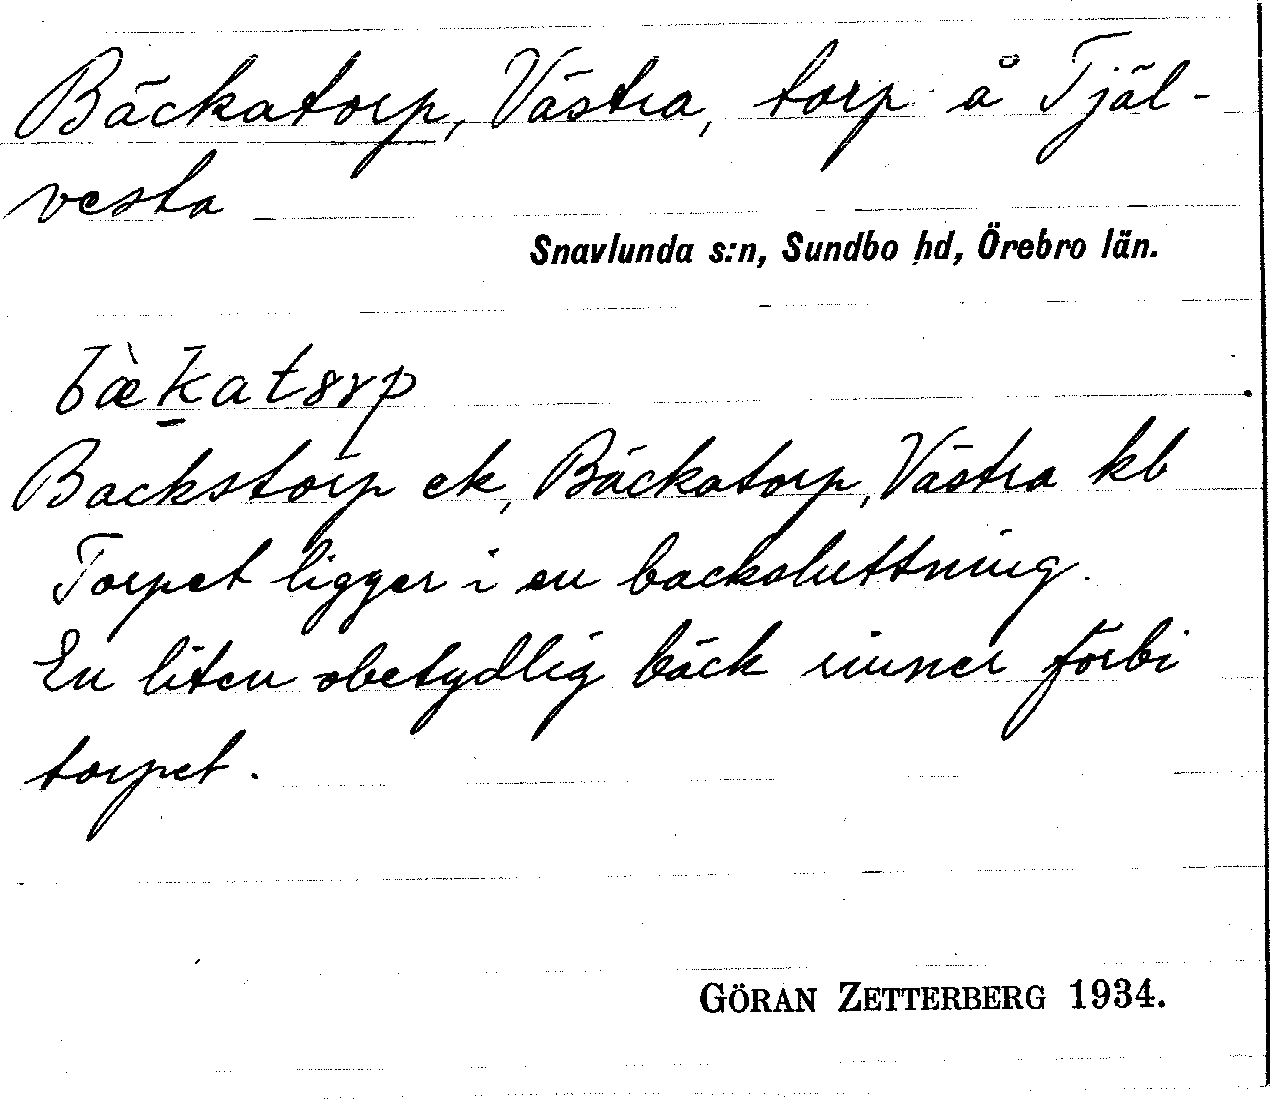 Bäckatorp, Västra, torp å Tjäl-
vesta
Snavlunda s:n, Sundbo hd, Örebro län.
bæ̀k̠atɜrp
Backstorp ek, Bäckatorp, Västra kb
Torpet ligger i en backsluttning.
En liten obetydlig bäck rinner förbi
torpet.
GÖRAN ZETTERBERG 1934.